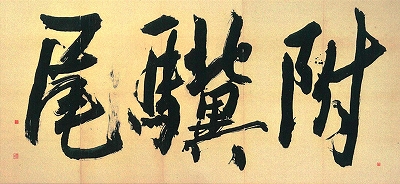 附驥尾